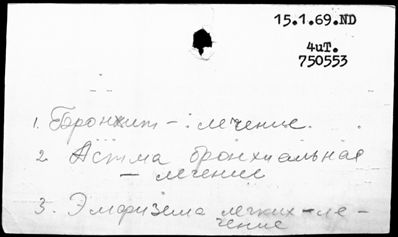 15.1.69.ND
4иТ.
750553
1. Бронхит - : лечение.
2. Астма бронхиальная
- лечение
3. Эмфизема легких - ле-
чение